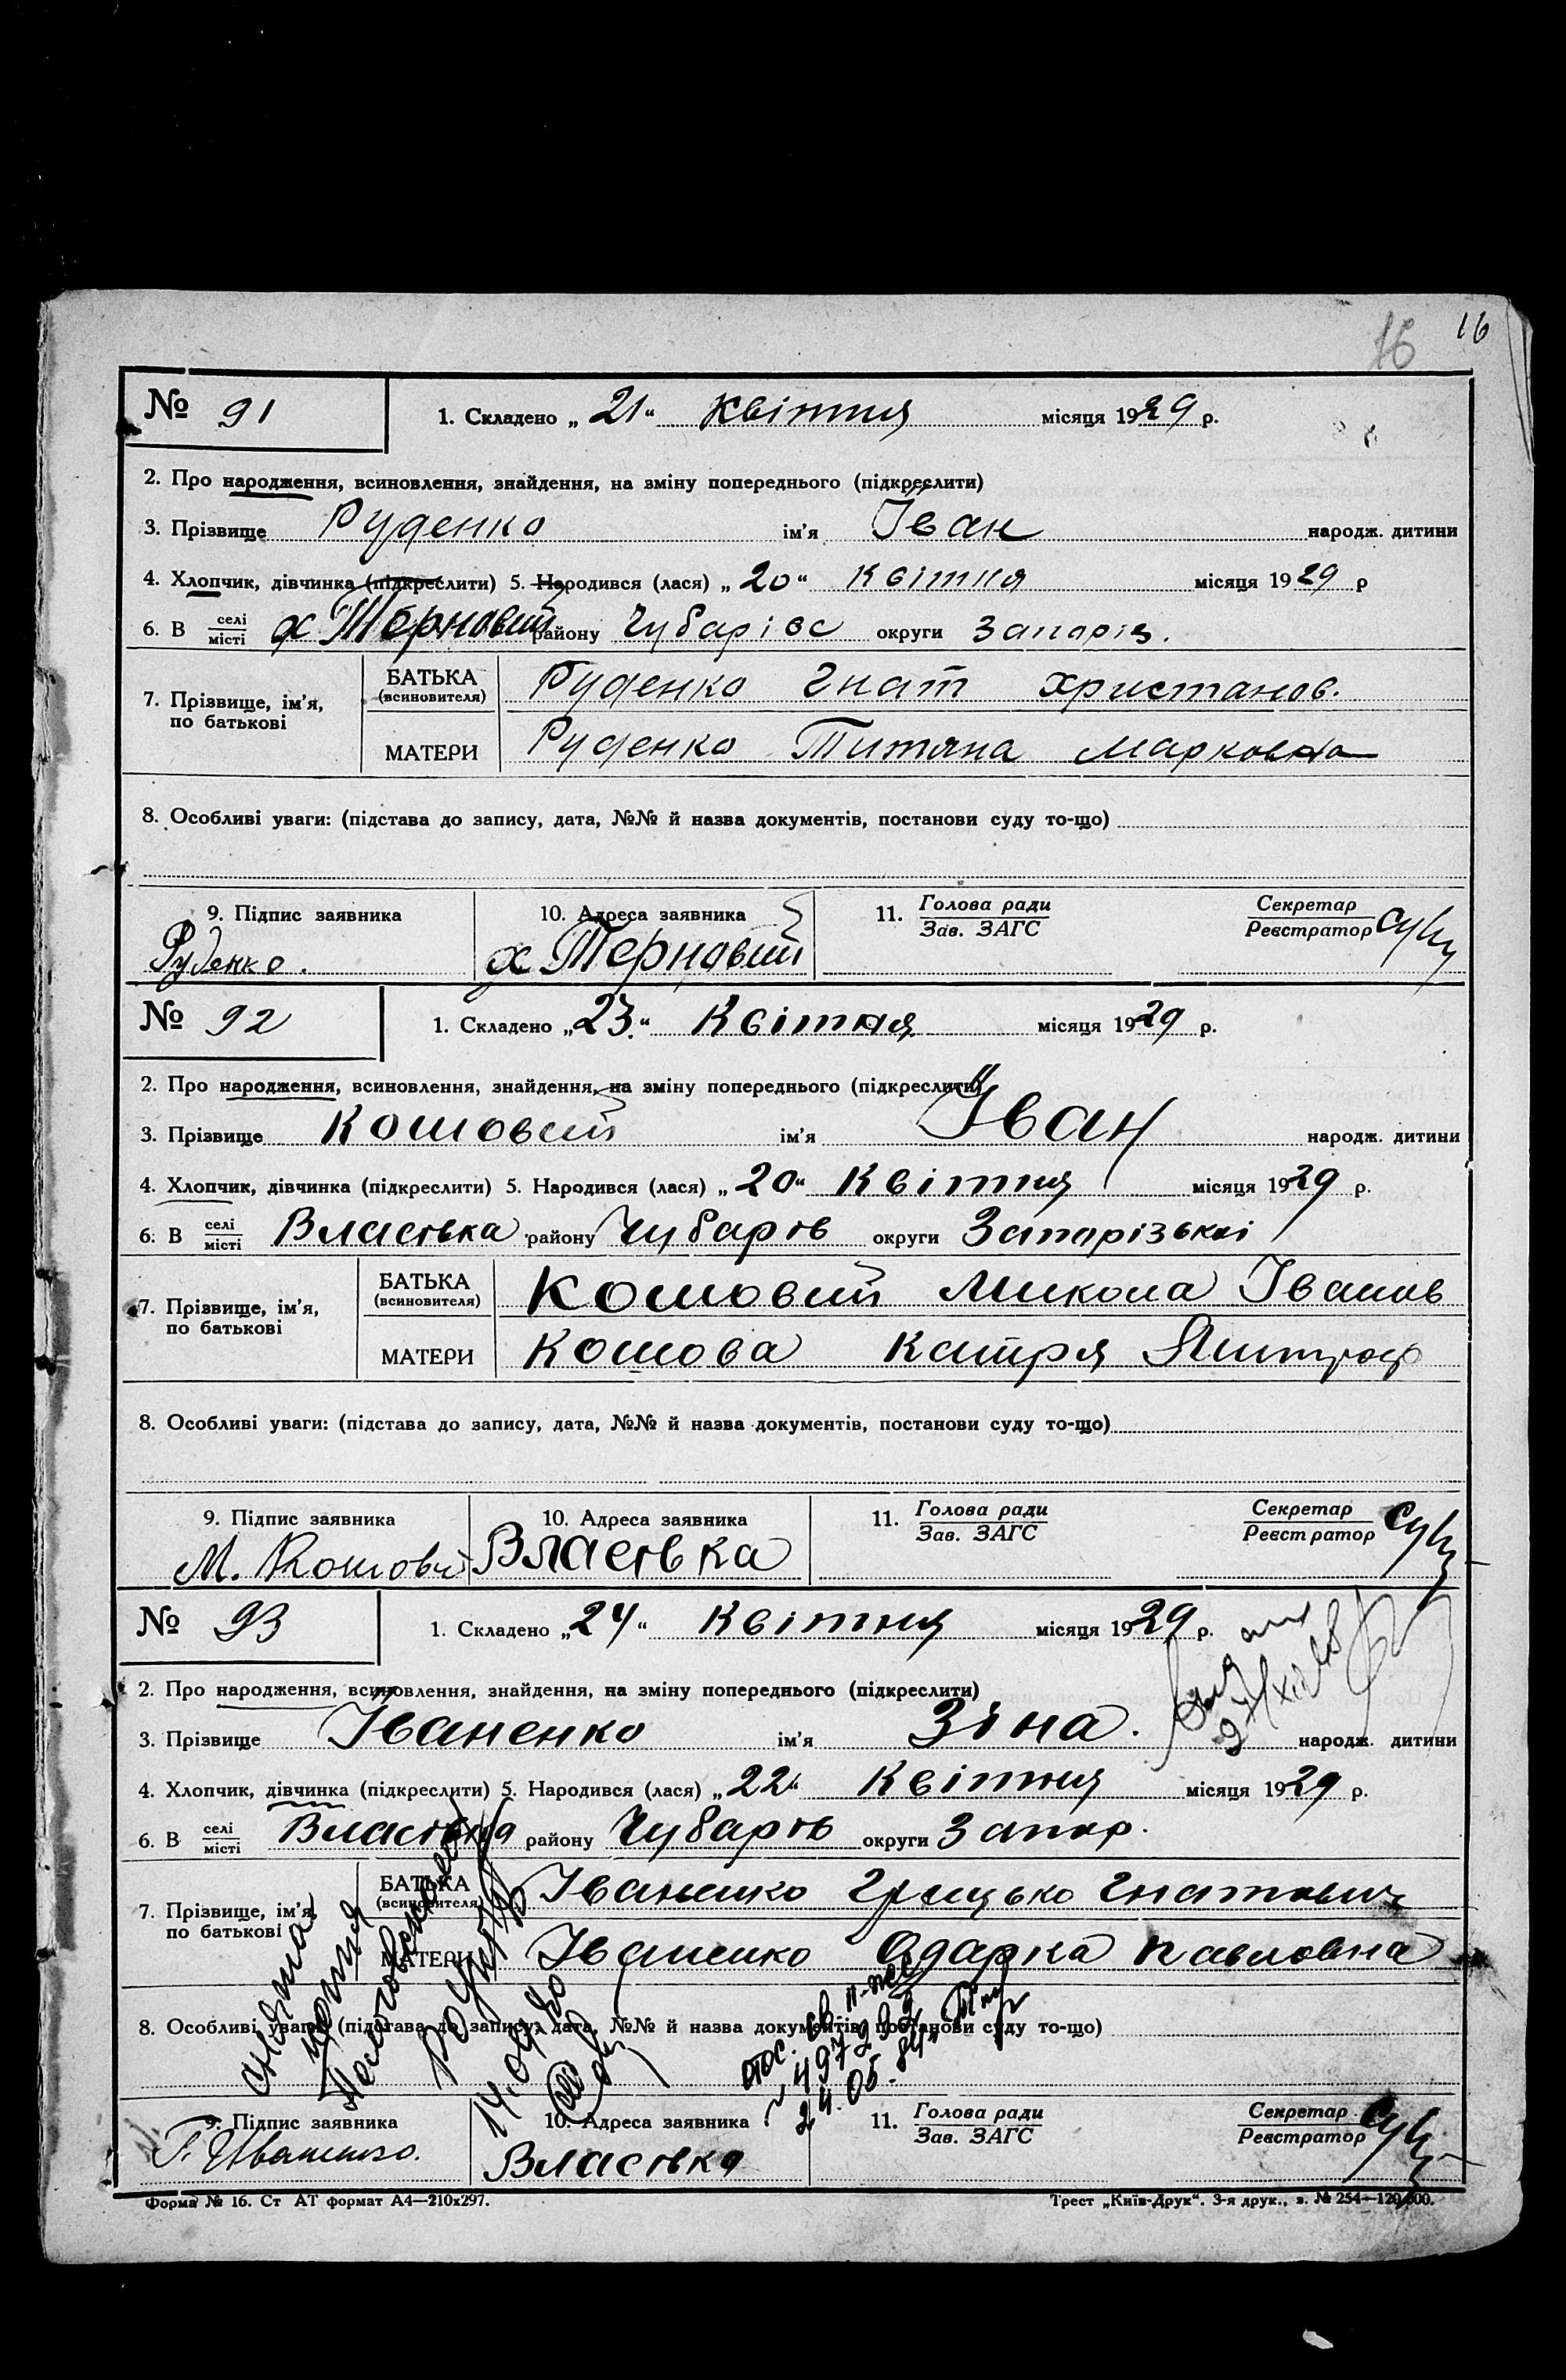 16 16
№ 91 1. Складено „21“ квітня місяця 1929 р.
2. Про народження, всиновлення, знайдення, на зміну попереднього (підкреслити)
3. Прізвище Руденко ім'я Іван народж. дитини
4. Хлопчик, дівчинка (підкреслити) 5. Народився (лася) „20“ Квітня місяця 1929 р
6. В селі/місті х Терновий району Чубарівс округи Запоріз.
БАТЬКА (всиновителя) Руденко Гнат Христанов.
7. Прізвище, ім'я, по батькові
МАТЕРИ Руденко Титяна Марковна
8. Особливі уваги: (підстава до запису, дата, №№ й назва документів, постанови суду то-що)
9. Підпис заявника 10. Адреса заявника 11. Голова ради/Зав. ЗАГС Секретар/Реєстратор
Руденко. х Терновий
№ 92 1. Складено „23“ Квітня місяця 1929 р.
2. Про народження, всиновлення, знайдення, на зміну попереднього (підкреслити)
3. Прізвище Кошовий ім'я Іван народж. дитини
4. Хлопчик, дівчинка (підкреслити) 5. Народився (лася) „20“ Квітня місяця 1929 р.
6. В селі/місті Власівка району Чубарів округи Запорізькі
БАТЬКА (всиновителя) Кошовий Микола Іванов
7. Прізвище, ім'я, по батькові
МАТЕРИ Кошова Катря
8. Особливі уваги: (підстава до запису, дата, №№ й назва документів, постанови суду то-що)
9. Підпис заявника 10. Адреса заявника 11. Голова ради/Зав. ЗАГС Секретар/Реєстратор
М. Кошовий Власівка
№ 93 1. Складено „24“ Квітня місяця 1929 р.
2. Про народження, всиновлення, знайдення, на зміну попереднього (підкреслити)
3. Прізвище Іваненко ім'я Зіна. народж. дитини
4. Хлопчик, дівчинка (підкреслити) 5. Народився (лася) „22“ Квітня місяця 1929 р.
6. В селі/місті Власівка району Чубарів округи Запор.
БАТЬКА (всиновителя) Іваненко Грицько Гнатович
7. Прізвище, ім'я, по батькові
МАТЕРИ Іваненко Одарка Павловна
8. Особливі уваги: (підстава до запису, дата, №№ й назва документів, постанови суду то-що)
24.05.84
9. Підпис заявника 10. Адреса заявника 11. Голова ради/Зав. ЗАГС Секретар/Реєстратор
Г. Иваненко. Власівка
Форма № 16. Ст АТ формат А4—210х297. Трест „Київ-Друк“. 3-я друк., з. № 254—120,000.